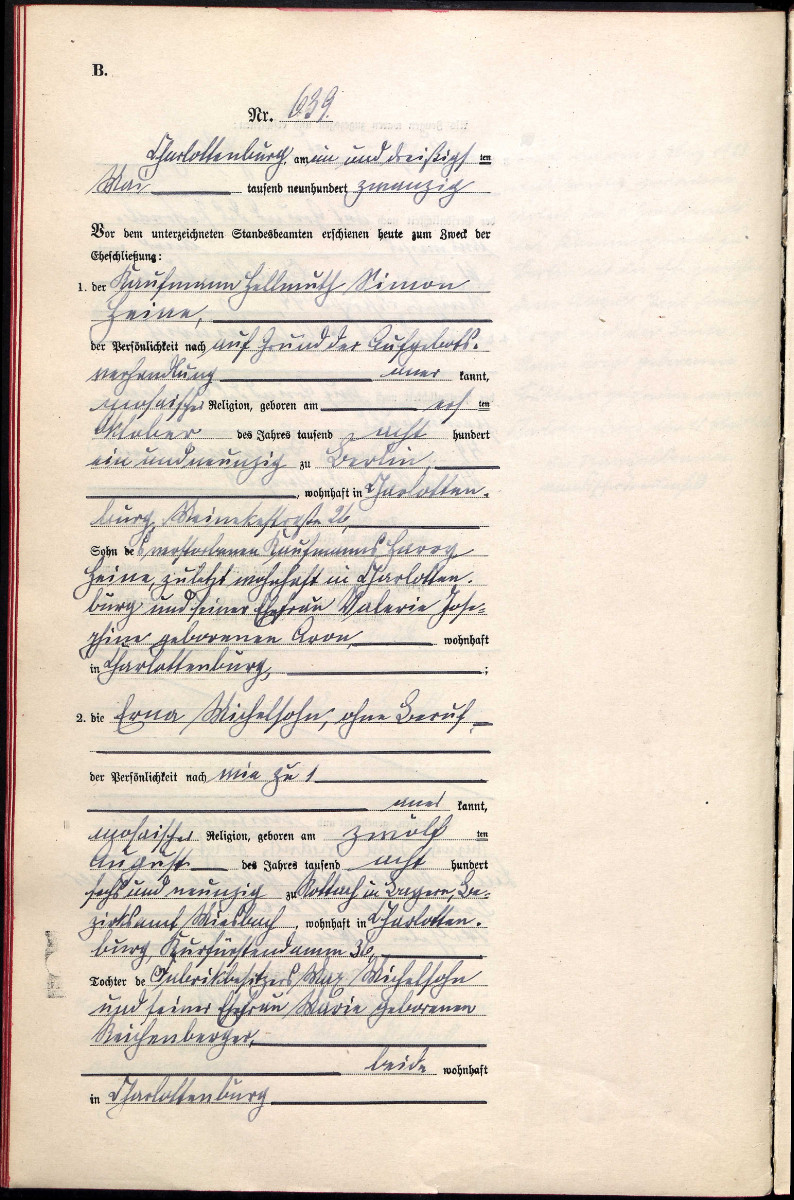 B.
Nr. 639.
Charlottenburg, am ein und dreißigsten
Mai tausend neunhundert zwanzig
Vor dem unterzeichneten Standesbeamten erschienen heute zum Zweck der
Eheschließung:
1. der Kaufmann Hellmuth Simon
Heine,
der Persönlichkeit nach auf Grund der Aufgebots-
verhandlung aner kannt,
mosaischer Religion, geboren am ten
Oktober des Jahres tausend acht hundert
ein und neunzig zu Berlin,
, wohnhaft in Charlotten-
burg, Meinekestraße 26,
Sohn des verstorbenen Kaufmanns Harry
Heine, zuletzt wohnhaft in Charlotten-
burg und seiner Ehefrau Valerie Jose-
phine geborenen Aron, wohnhaft
in Charlottenburg, ;
2. die Erna Michelsohn, ohne Beruf,
der Persönlichkeit nach wie zu 1
aner kannt,
mosaischer Religion, geboren am zwölf ten
August des Jahres tausend acht hundert
sechs und neunzig zu Rottach in Bayern, Be-
zirksamt Miesbach, wohnhaft in Charlotten-
burg Kurfürstendamm
Tochter de Fabrikbesitzers Max Michelsohn
und seiner Ehefrau Marie geborenen
Reichenberger,
beide wohnhaft
in Charlottenburg